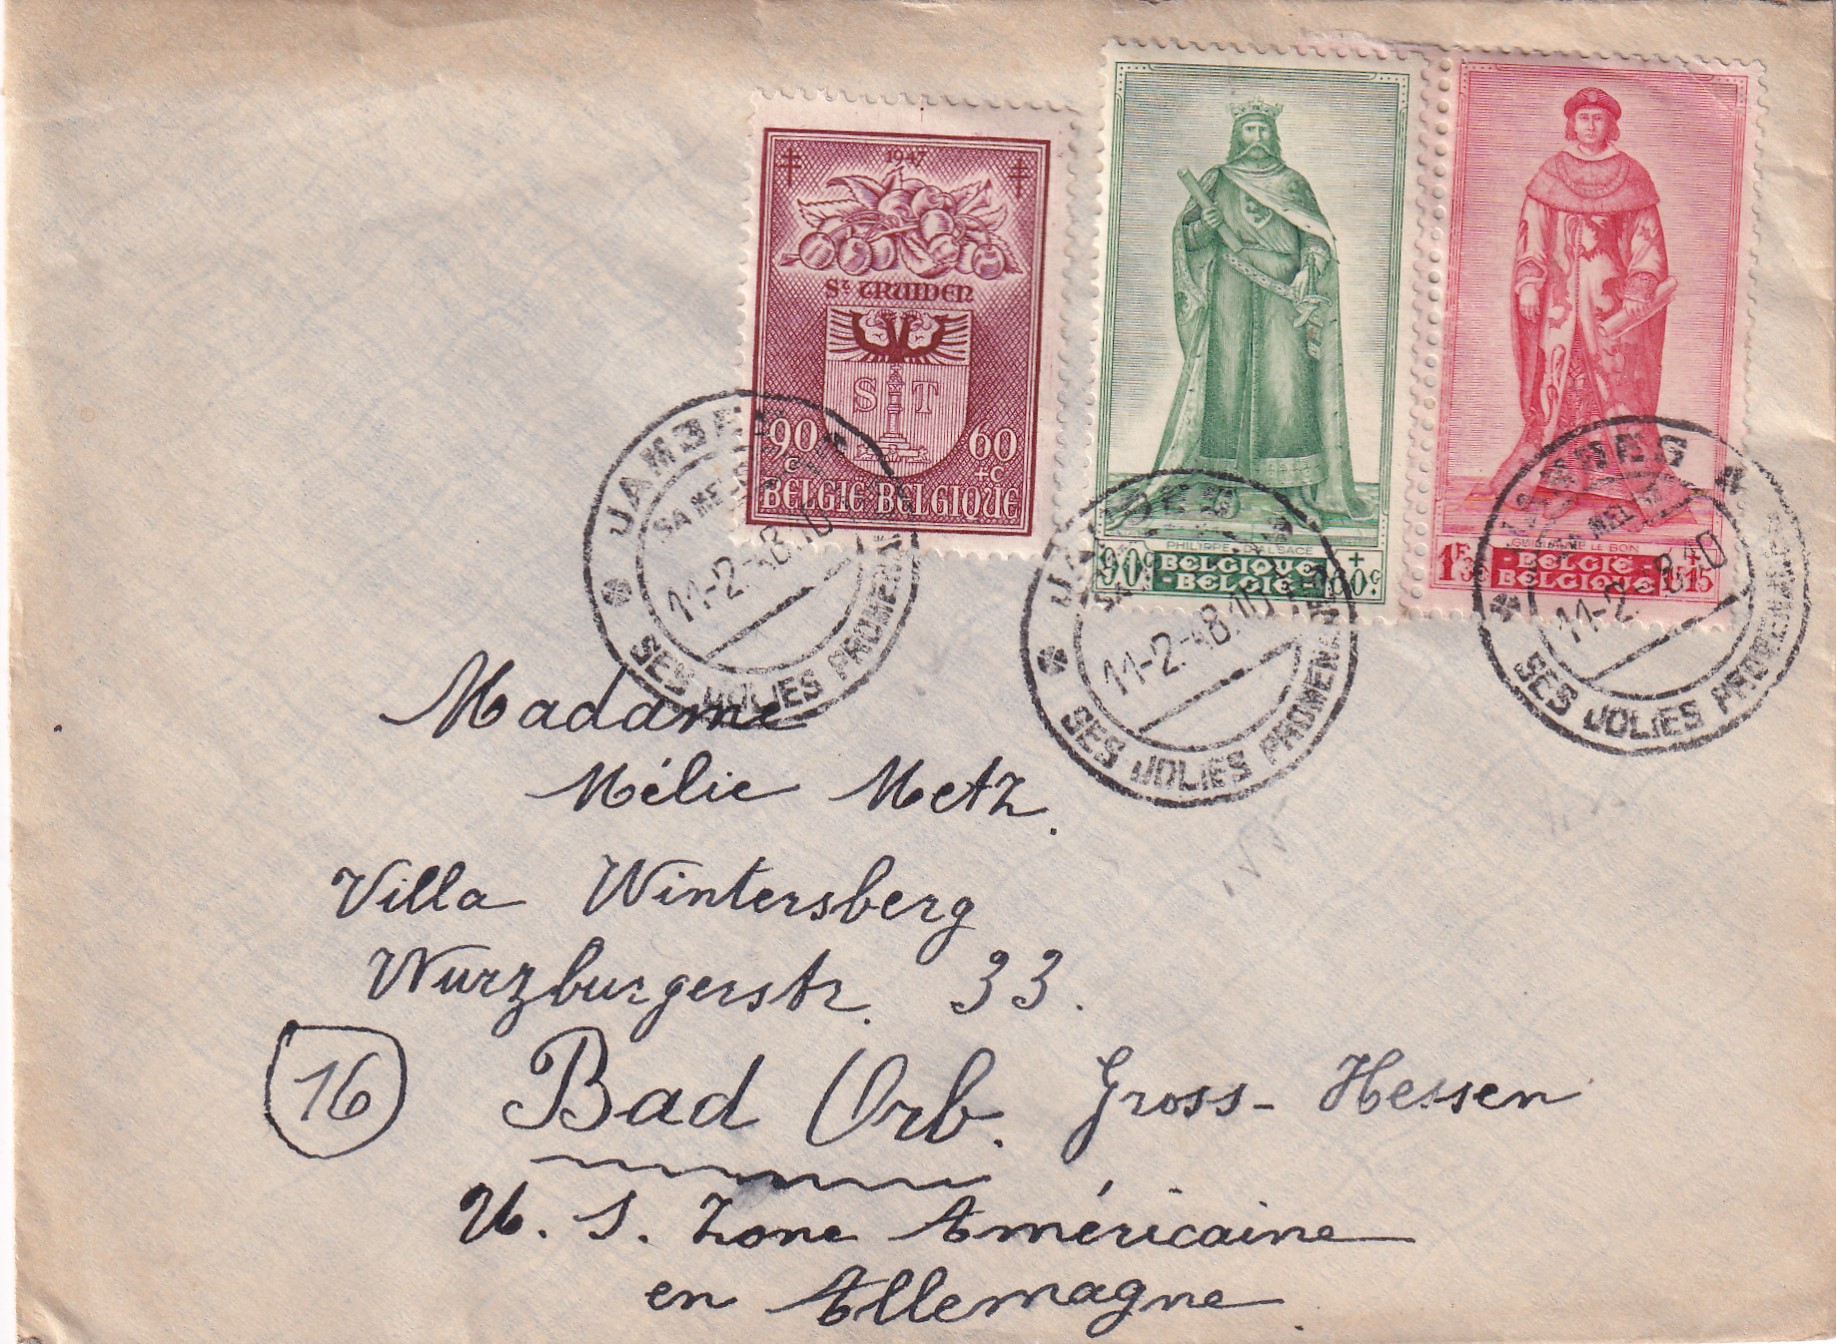 1947
St TRUIDEN
S T
90 c 60 +c
BELGIE-BELGIQUE
PHILIPPE D'ALSACE
90c BELGIQUE + 60c
-BELGIE-
GUILLAUME LE BON
1F35 -BELGIE- + 1F15
BELGIQUE
JAMBES
SA MEUSE
11-2-48.10
SES JOLIES PROMENA
JAMBES
SA
11-2-48.10
SES JOLIES PROMENA
JAMBES
11-2-48.10
SES JOLIES PROMENA
Madame
Mélie Metz.
Villa Wintersberg
Wurzburgerstr. 33.
16 Bad Orb. Gross-Hessen
U. S. Zone Américaine
en Allemagne